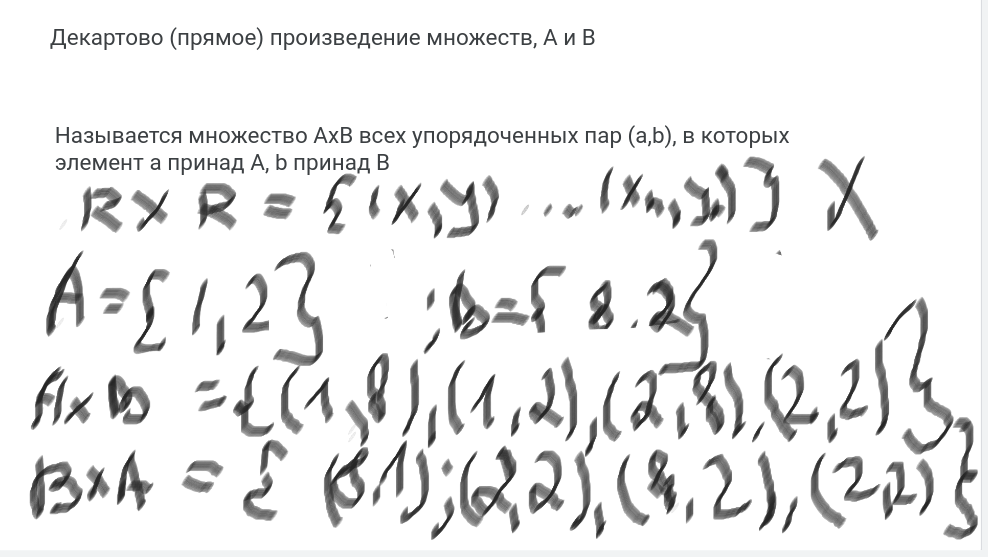 Декартово (прямое) произведение множеств, А и В
Называется множество АхВ всех упорядоченных пар (a,b), в которых
элемент a принад А, b принад В
R x R = {(x,y) ... (xn,yn)} X
A={1,2} ;b={8.2}
A x b = {(1,8),(1,2),(2,8),(2,2)}
B x A = { (8,1);(2,2),(8,2),(2,2)}